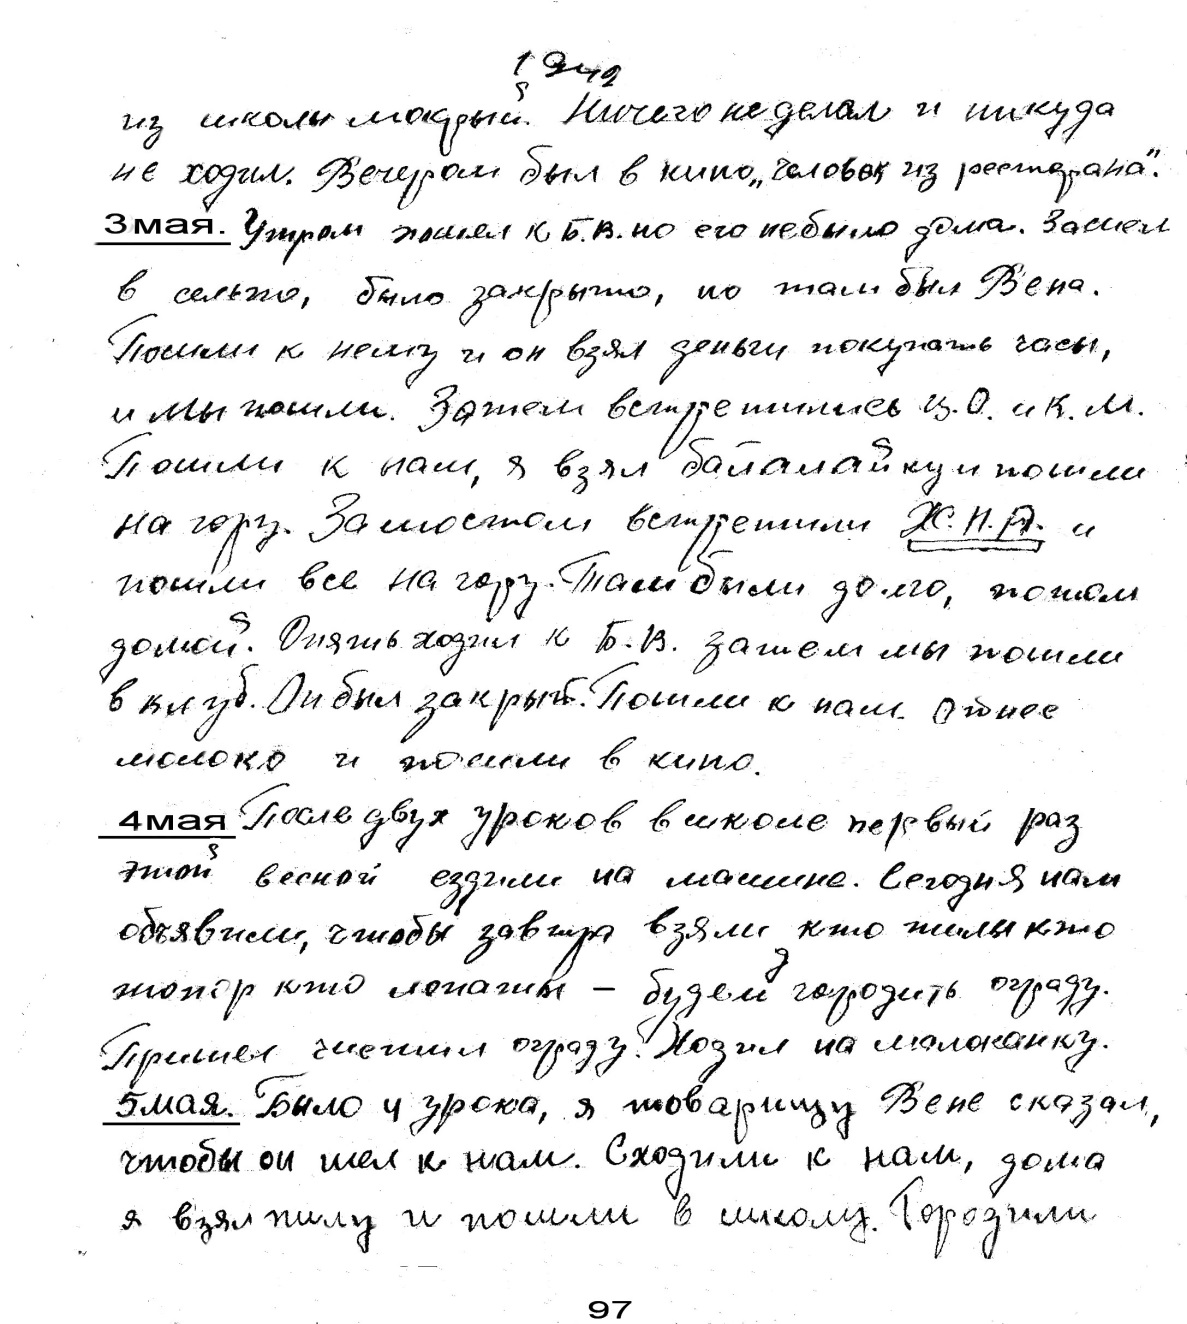 1942
из школы мокрый. Ничего не делал и никуда
не ходил. Вечером был в кино „Человек из ресторана".
3 мая. Утром пошел к Б.В. но его не было дома. Зашел
в сельпо, было закрыто, но там был Вена.
Пошли к нему и он взял деньги покупать часы,
и мы пошли. Затем встретились Ц.О. и К.М.
Пошли к нам, я взял балалайку и пошли
на гору. За мостом встретили Х.Н.А. и
пошли все на гору. Там были долго, потом
домой. Опять ходил к Б.В. затем мы пошли
в клуб. Он был закрыт. Пошли к нам. Отнес
молоко и пошли в кино.
4 мая После двух уроков в школе первый раз
этой весной ездили на машине. Сегодня нам
объявили, чтобы завтра взяли кто пилы кто
топор кто лопаты – будем городить ограду.
Пришел чистил ограду. Ходил на молоканку.
5 мая. Было 4 урока, я товарищу Вене сказал,
чтобы он шел к нам. Сходили к нам, дома
я взял пилу и пошли в школу. Городили
97